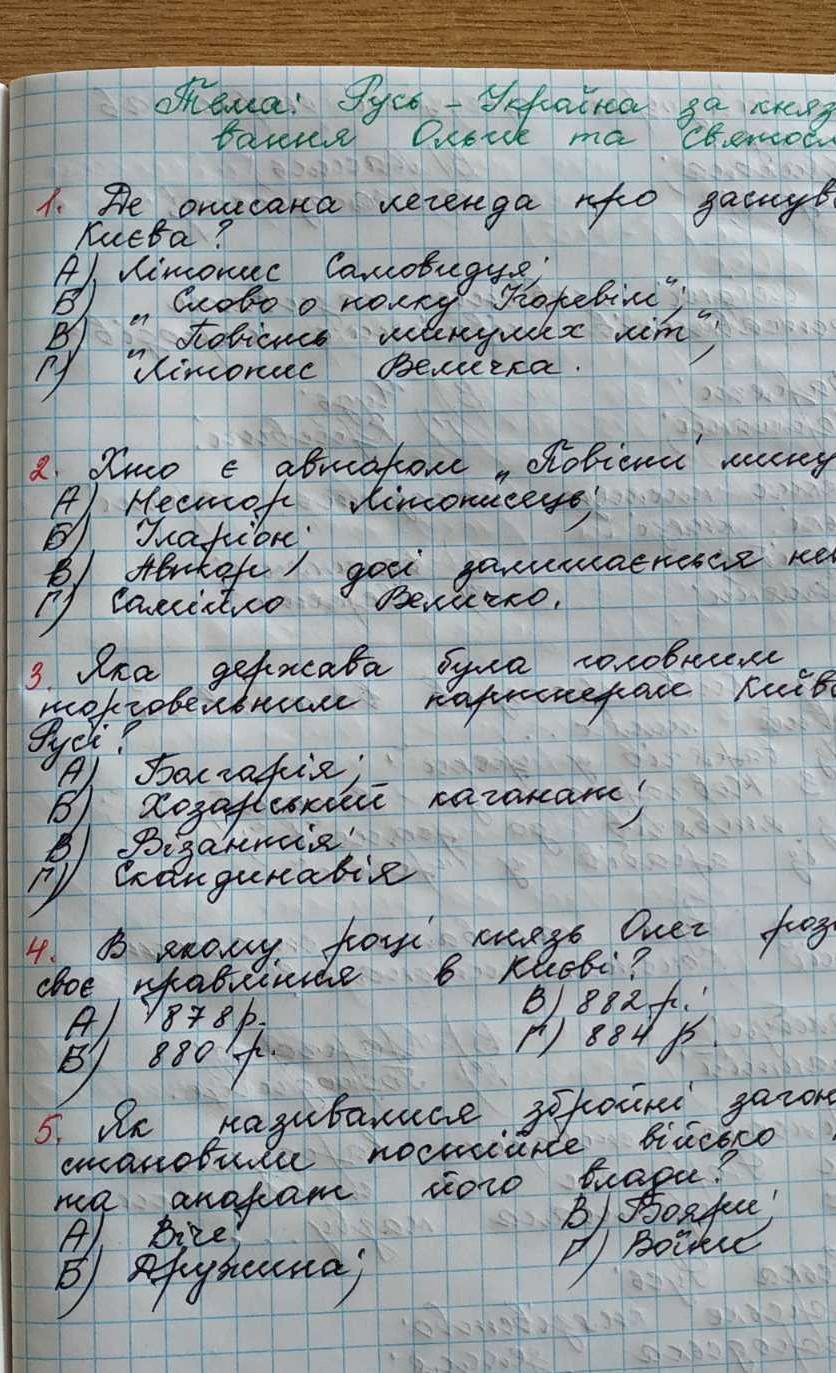 Тема: Русь - Україна за княз
вання Ольги та Святосл
1. Де описана легенда про заснув
Києва?
А) Літопис Самовидця;
Б) "Слово о полку Ігоревім";
В) "Повість минулих літ";
Г) Літопис Величка.
2. Хто є автором "Повісті мину
А) Нестор Літописець;
Б) Іларіон;
В) Автор досі залишається не
Г) Самійло Величко.
3. Яка держава була головним
торговельним партнером Київс
Русі?
А) Болгарія;
Б) Хозарський каганат;
В) Візантія;
Г) Скандинавія
4. В якому році князь Олег роз
своє правління в Києві?
А) 878 р. В) 882 р.;
Б) 880 р. Г) 884 р.
5. Як називалися збройні загон
становили постійне військо
та апарат його влади?
А) Віче; В) Бояри;
Б) Дружина; Г) Воїни